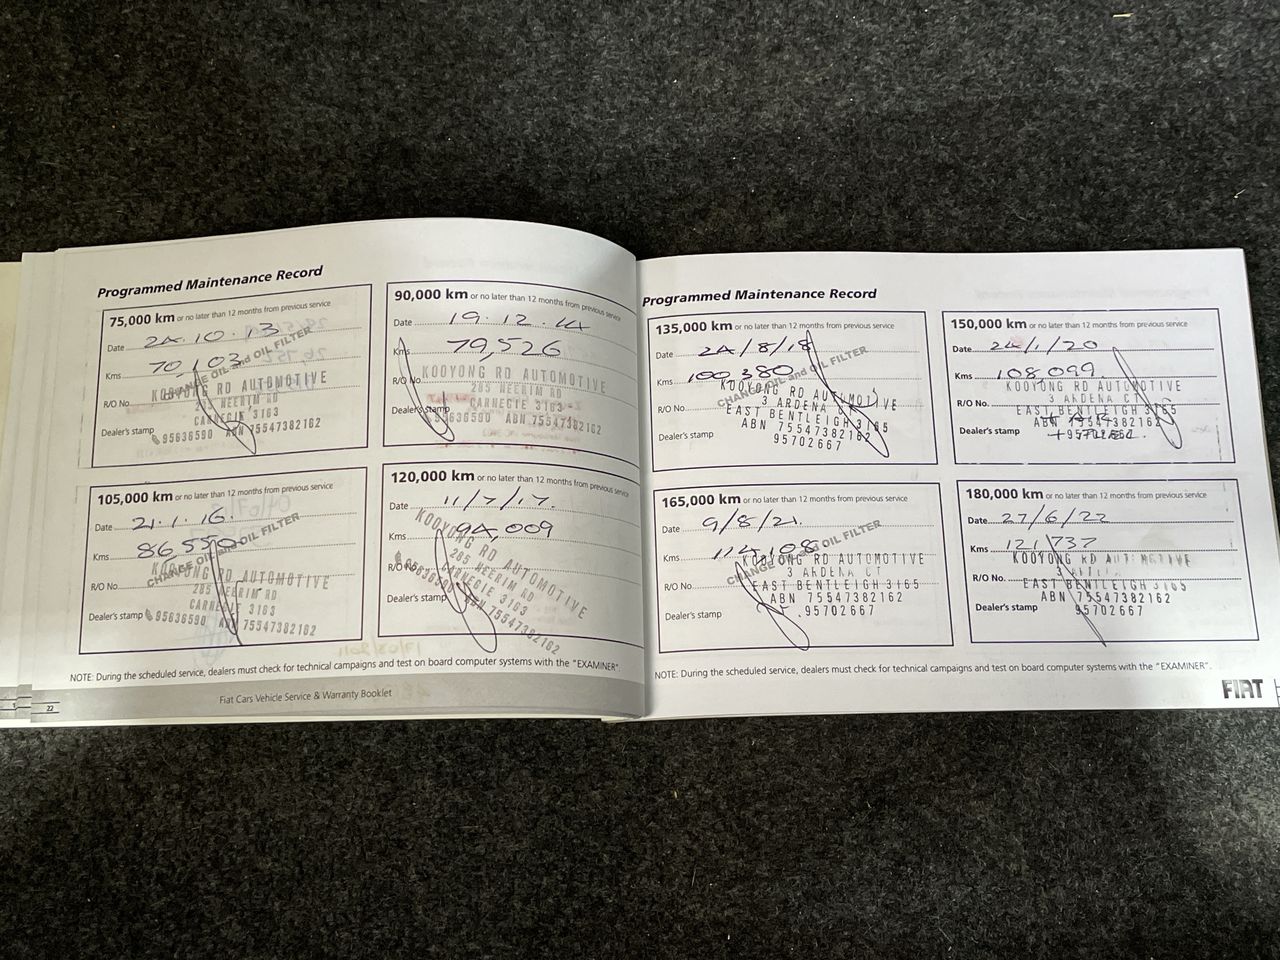 Programmed Maintenance Record
75,000 km or no later than 12 months from previous service
Date 24.10.13
Kms 70,103
CHANGE OIL and OIL FILTER
R/O No.
KOOYONG RD AUTOMOTIVE
285 NEERIM RD
CARNEGIE 3163
Dealer's stamp
95636590 ABN 75547382162
90,000 km or no later than 12 months from previous service
Date 19.12.14
Kms 79,526
R/O No
KOOYONG RD AUTOMOTIVE
285 NEERIM RD
Dealer's stamp
CARNEGIE 3163
95636590 ABN 75547382162
105,000 km or no later than 12 months from previous service
Date 21.1.16.
Kms 86,550
CHANGE OIL and OIL FILTER
R/O No.
KOOYONG RD AUTOMOTIVE
285 NEERIM RD
CARNEGIE 3163
Dealer's stamp
95636590 ABN 75547382162
120,000 km or no later than 12 months from previous service
Date 11/7/17.
Kms 94,009
R/O No
KOOYONG RD AUTOMOTIVE
285 NEERIM RD
CARNEGIE 3163
Dealer's stamp
95636590 ABN 75547382162
NOTE: During the scheduled service, dealers must check for technical campaigns and test on board computer systems with the "EXAMINER".
22
Fiat Cars Vehicle Service & Warranty Booklet
Programmed Maintenance Record
135,000 km or no later than 12 months from previous service
Date 24/8/18
Kms 100,380
CHANGE OIL and OIL FILTER
R/O No.
KOOYONG RD AUTOMOTIVE
3 ARDENA CT
EAST BENTLEIGH 3165
Dealer's stamp
ABN 75547382162
95702667
150,000 km or no later than 12 months from previous service
Date 24/1/20
Kms 108,099
KOOYONG RD AUTOMOTIVE
R/O No.
3 ARDENA CT
EAST BENTLEIGH 3165
Dealer's stamp
ABN 75547382162
165,000 km or no later than 12 months from previous service
Date 9/8/21.
Kms 114,108
CHANGE OIL and OIL FILTER
KOOYONG RD AUTOMOTIVE
3 ARDENA CT
R/O No.
EAST BENTLEIGH 3165
ABN 75547382162
Dealer's stamp
95702667
180,000 km or no later than 12 months from previous service
Date 27/6/22
Kms 121,737
KOOYONG RD AUTOMOTIVE
R/O No.
EAST BENTLEIGH 3165
ABN 75547382162
Dealer's stamp
95702667
NOTE: During the scheduled service, dealers must check for technical campaigns and test on board computer systems with the "EXAMINER".
FIAT